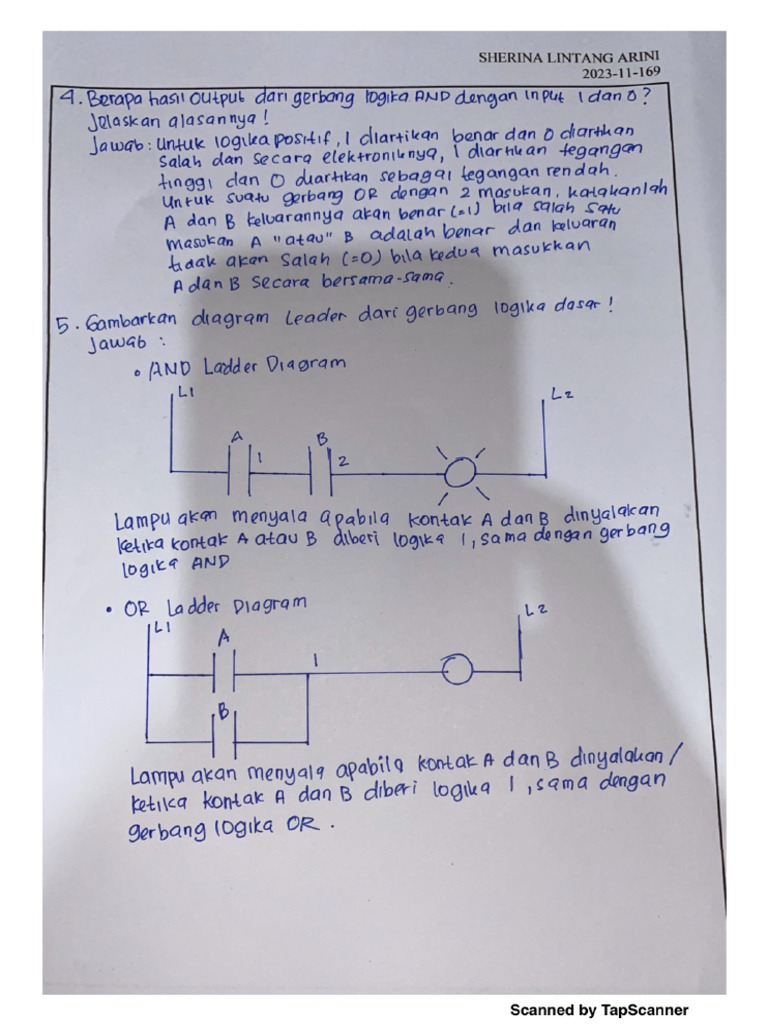 SHERINA LINTANG ARINI
2023-11-169
4. Berapa hasil output dari gerbang logika AND dengan input 1 dan 0?
Jelaskan alasannya!
Jawab: Untuk logika positif, 1 diartikan benar dan 0 diartikan
salah dan secara elektroniknya, 1 diartikan tegangan
tinggi dan 0 diartikan sebagai tegangan rendah.
Untuk suatu gerbang OR dengan 2 masukan, katakanlah
A dan B keluarannya akan benar (=1) bila salah satu
masukan A "atau" B adalah benar dan keluaran
tidak akan salah (=0) bila kedua masukkan
A dan B secara bersama-sama.
5. Gambarkan diagram Leader dari gerbang logika dasar!
Jawab :
• AND Ladder Diagram
L1 L2
A B
1 2
Lampu akan menyala apabila kontak A dan B dinyalakan
ketika kontak A atau B diberi logika 1, sama dengan gerbang
logika AND
• OR Ladder Diagram
L1 L2
A
1
B
Lampu akan menyala apabila kontak A dan B dinyalakan/
ketika kontak A dan B diberi logika 1, sama dengan
gerbang logika OR.
Scanned by TapScanner